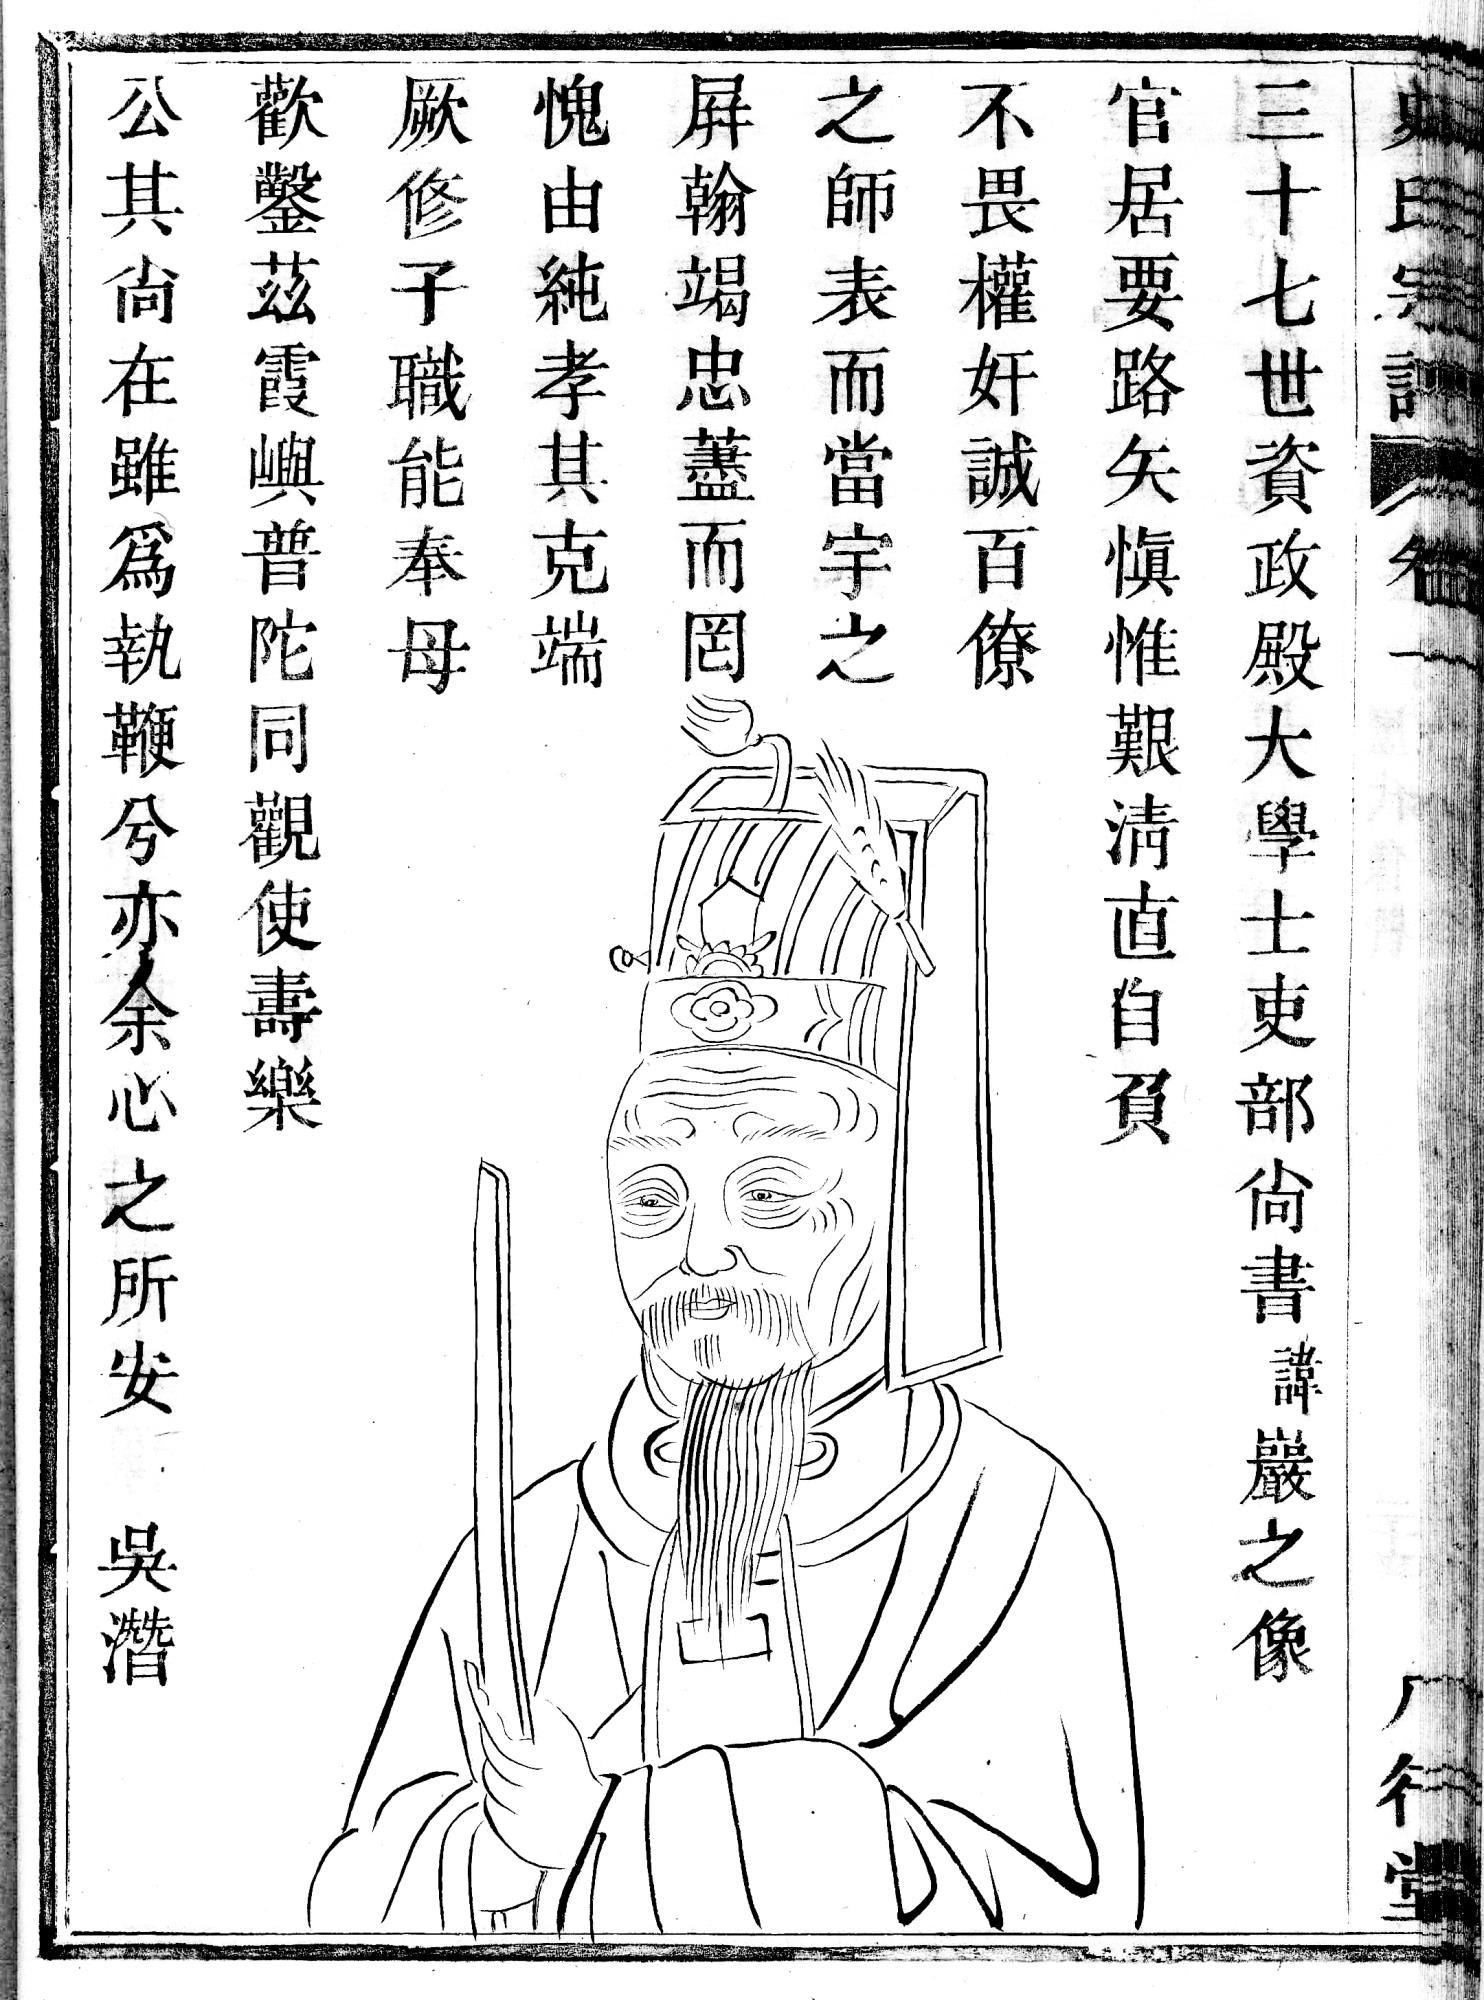 史氏宗譜 卷一 八行堂
三十七世資政殿大學士吏部尙書諱巖之像
官居要路矢愼惟艱淸直自負
不畏權奸誠百僚
之師表而當宇之
屛翰竭忠藎而罔
愧由純孝其克端
厥修子職能奉母
歡鑿茲霞嶼普陀同觀使壽樂
公其尙在雖爲執鞭兮亦余心之所安 吳潛